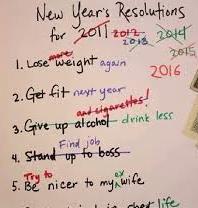 New Year's Resolutions
for 2011 2012 2013 2014 2015 2016
more
1. Lose weight again
2. Get fit next year
and cigarettes!
3. Give up alcohol drink less
Find job
4. Stand up to boss
Try to ex
5. Be nicer to my wife
life